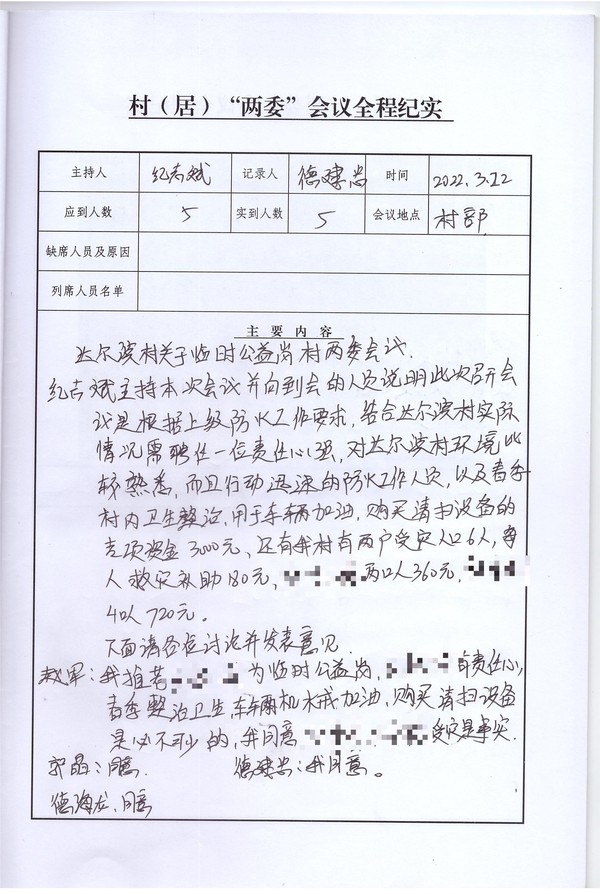 村（居）“两委”会议全程纪实
主持人 纪志斌 记录人 德建岩 时间 2022.3.12
应到人数 5 实到人数 5 会议地点 村部
缺席人员及原因
列席人员名单
主要内容
达尔滨村关于临时公益岗村两委会议.
纪志斌主持本次会议并向到会的人员说明此次召开会
议是根据上级防火工作要求，结合达尔滨村实际
情况需聘任一位责任心强，对达尔滨村环境比
较熟悉，而且行动迅速的防火工作人员，以及春季
村内卫生整治，用于车辆加油，购买清扫设备的
专项资金3000元、还有我村有两户受灾人口6人，每
人救灾补助180元， 两口人360元，
4口人720元。
下面请各位讨论并发表意见
军：我推荐 为临时公益岗， 有责任心，
春季整治卫生车辆机械加油，购买清扫设备
是必不可少的，我同意 受灾是事实.
郭晶：同意. 德建岩：我同意。
德海龙：同意